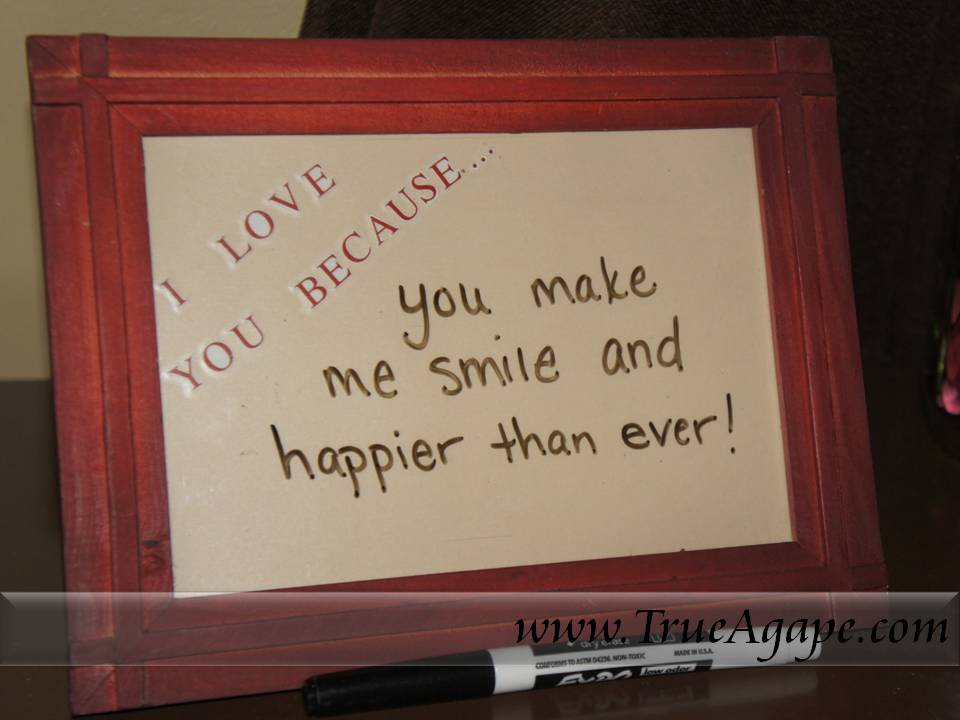 I LOVE
YOU BECAUSE....
you make
me smile and
happier than ever!
www.TrueAgape.com
CONFORMS TO ASTM D4236, NON-TOXIC
MADE IN U.S.A.
low odor